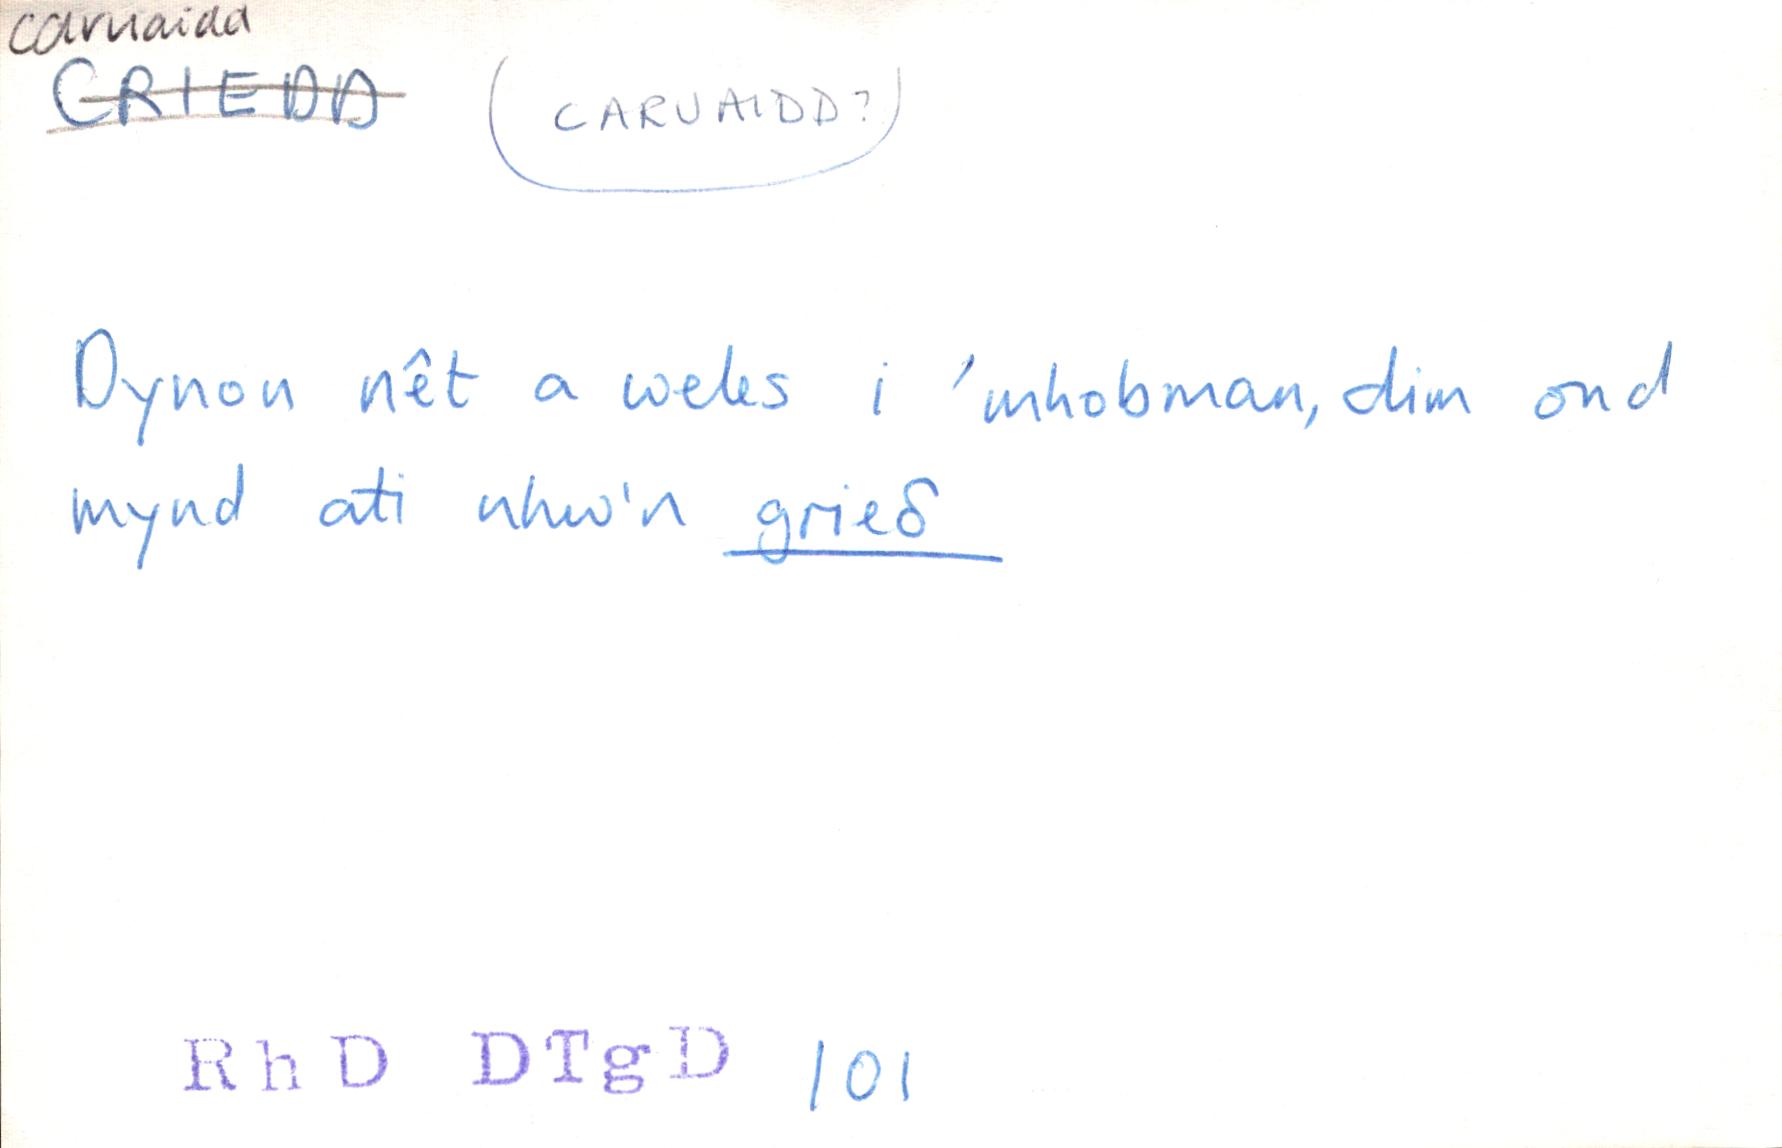 caruaidd
CRIEDD (CARUAIDD?)
Dynon nêt a weles i 'mhobman, dim ond
mynd ati nhw'n grieδ
RhD DTgD 101